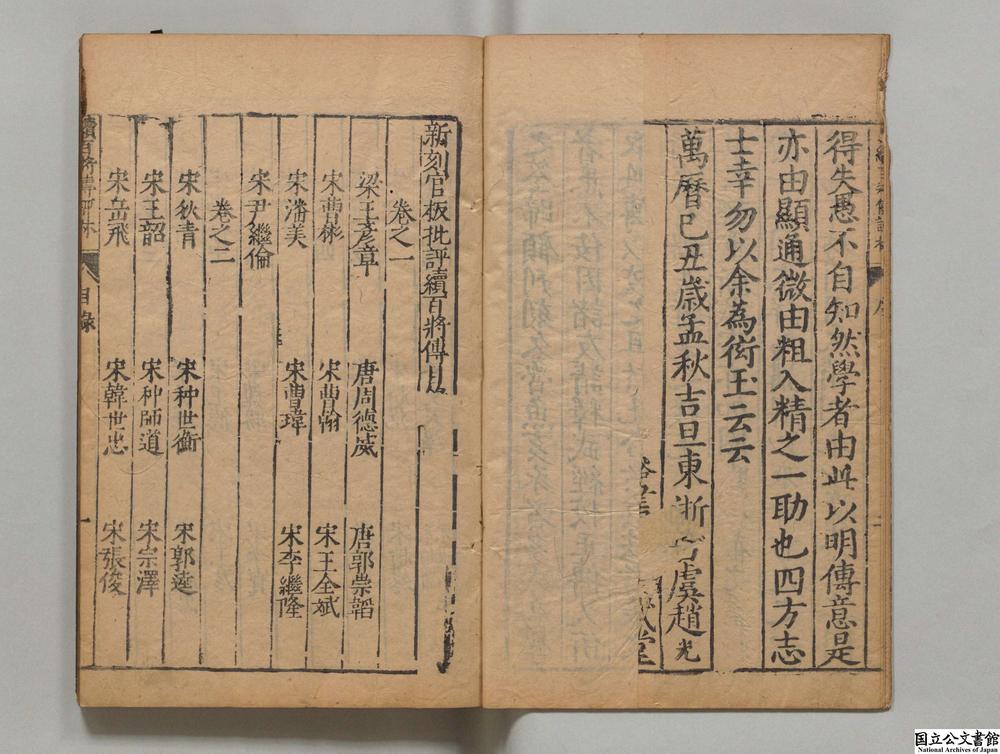 得失愚不自知然學者由此以明傳意是
亦由顯通微由粗入精之一助也四方志
士幸勿以余為衒玉云云
萬曆己丑歲孟秋吉旦東浙 虞趙光
新刻官板批評續百將傳目
卷之一
梁王彥章 唐周德威 唐郭崇韜
宋曹彬 宋曹翰 宋王全斌
宋潘美 宋曹瑋 宋李繼隆
宋尹繼倫
卷之二
宋狄青 宋种世衡 宋郭逵
宋王韶 宋种師道 宋宗澤
宋岳飛 宋韓世忠 宋張俊
續百將傳評林 目錄 一
国立公文書館
National Archives of Japan